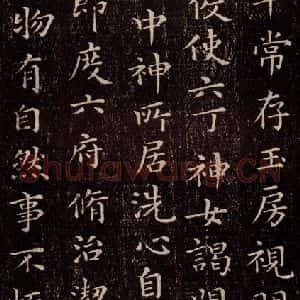 常存玉房視
役使六丁神女謁
中神所居洗心自
即度六府脩治潔
物有自然事不
Shufawang.CN